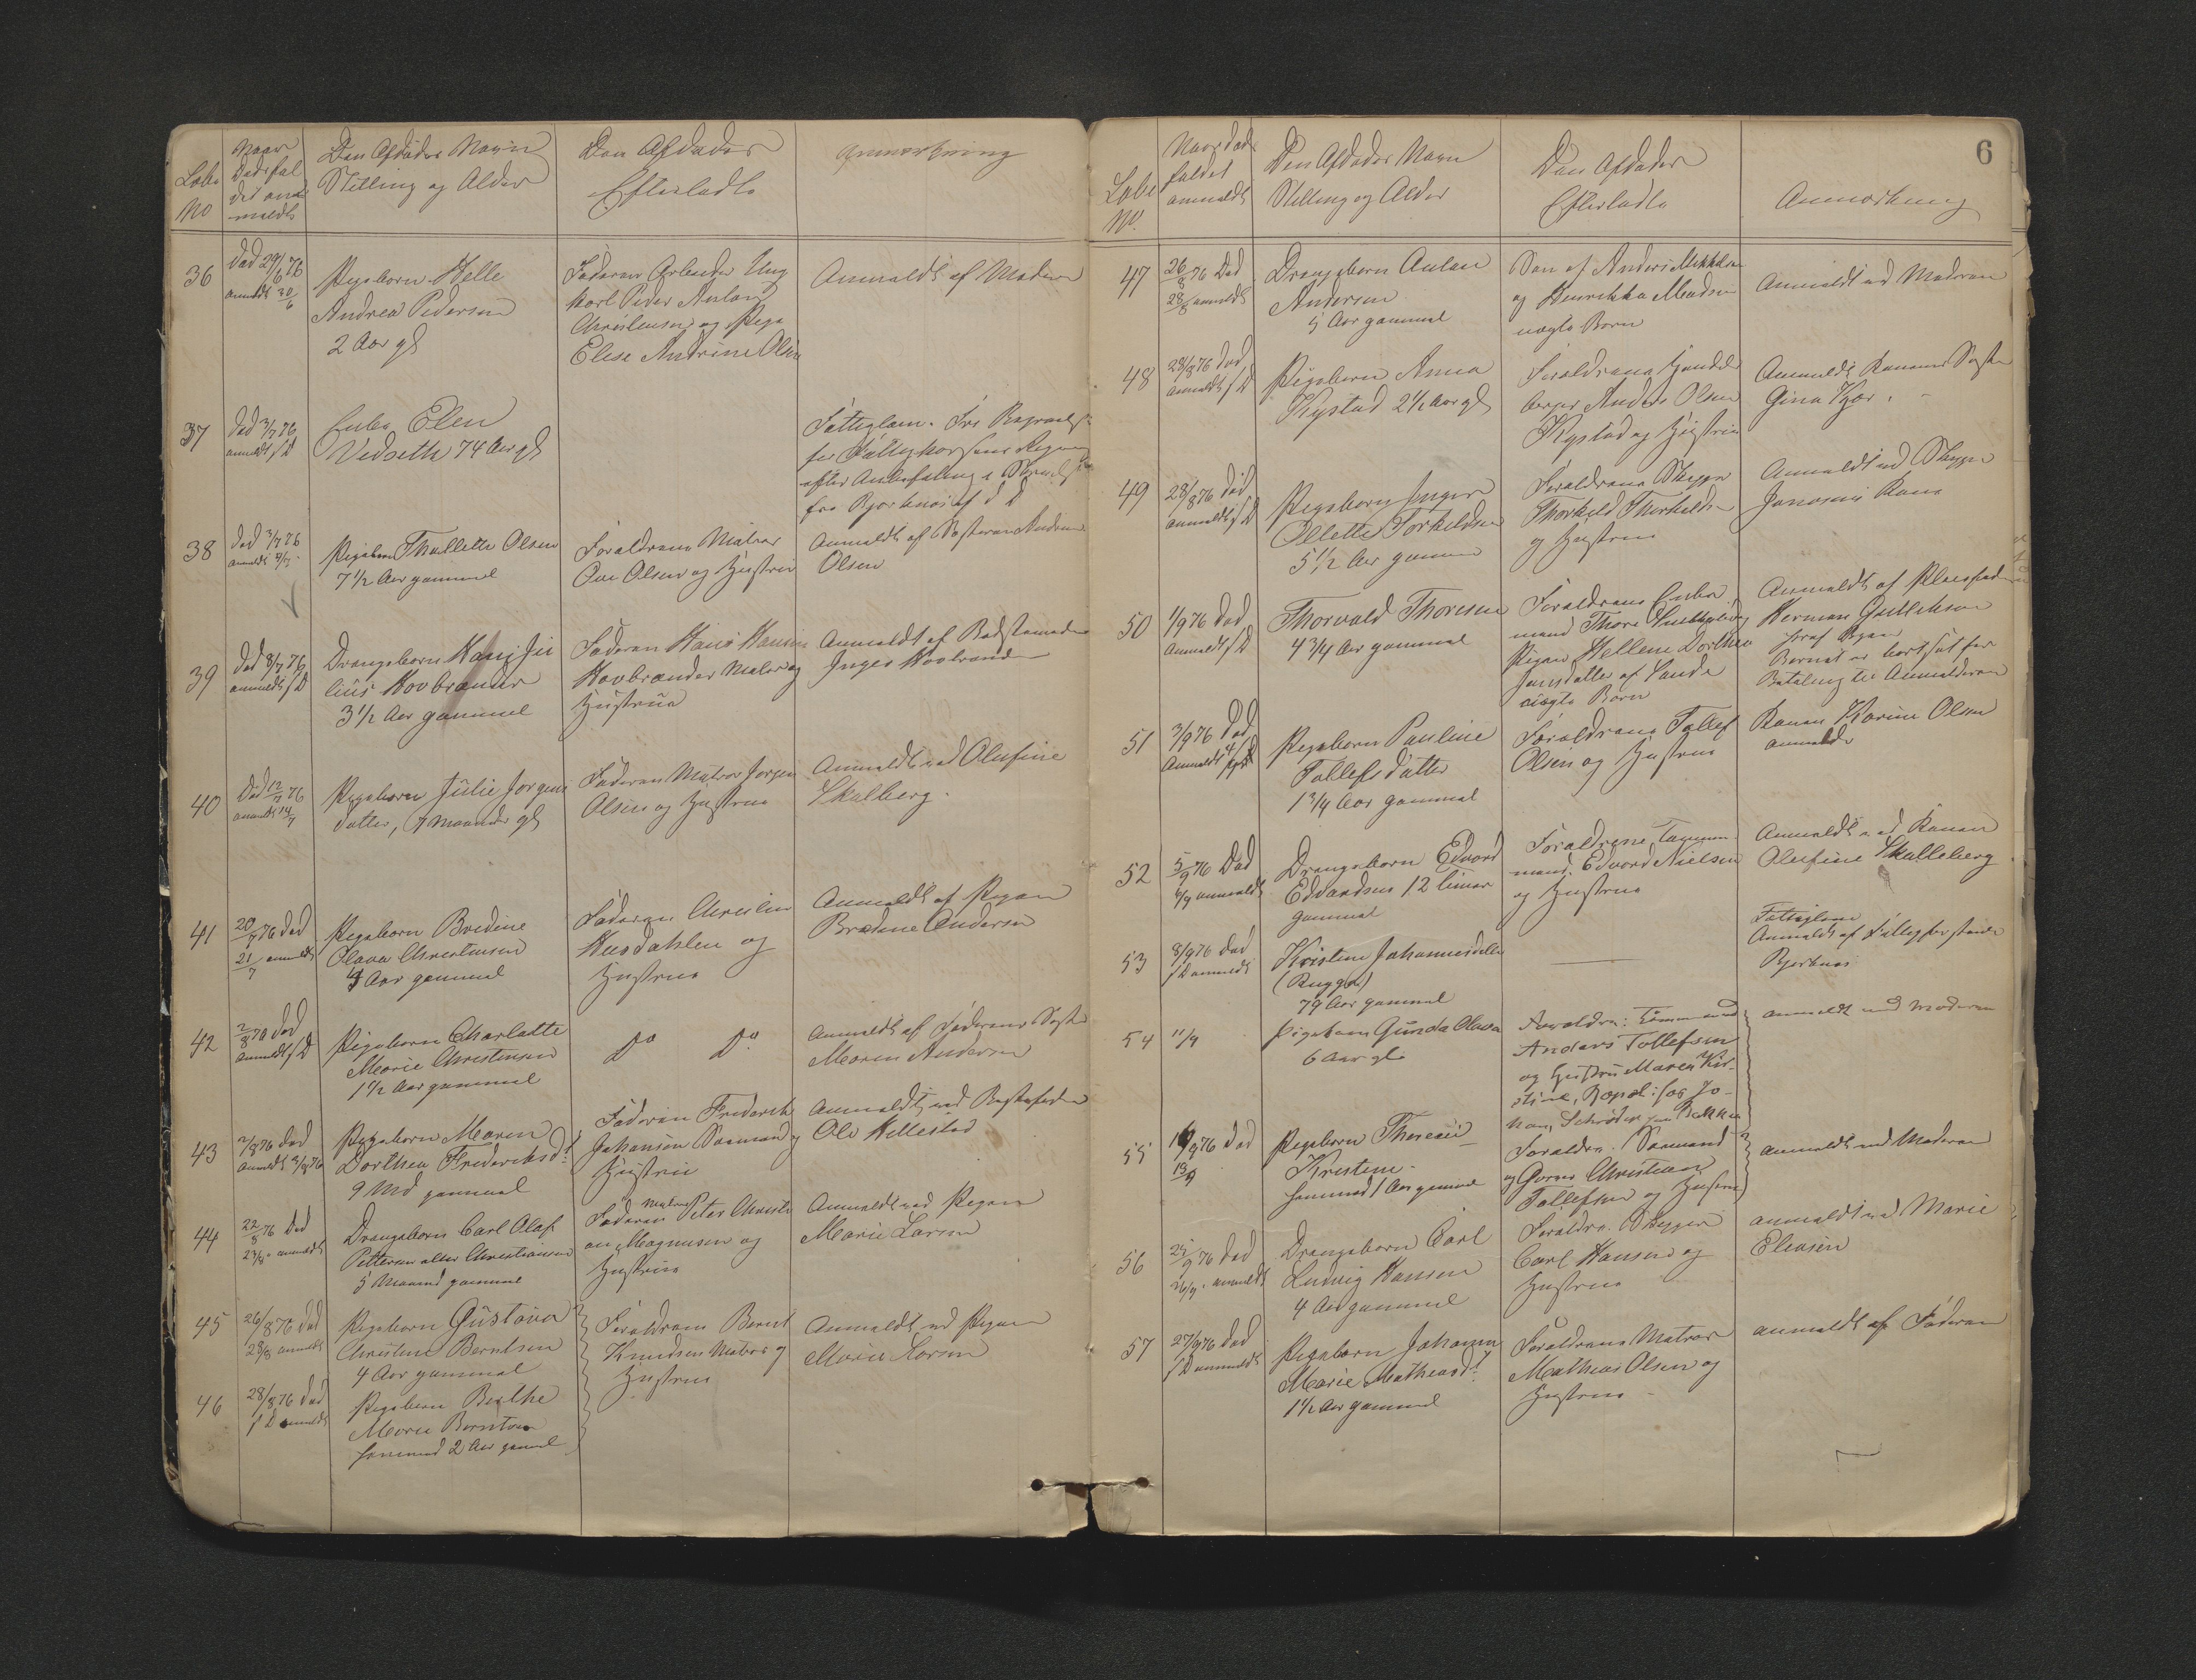 Løbe
No
Naar
Dødsfal
det an
meldt
Den Afdødes Navn
Stilling og Alder
Den Afdødes
Efterladte
Anmærkning
36
død 29/6 76
anmeldt 30/6
Pigebarn Helle
Andrea Pedersen
2 Aar gl
Faderen Arbeider Ung
karl Peder Anton
Christensen og Pige
Elise Andrine Olsen
Anmeldt af Moderen
37
død 3/7 76
anmeldt s D
Enke Elen
Vedseth 74 Aar gl
Fattiglem.
for Fattigkassens Regning
efter Anbefaling
fra Bjerknes af d D
38
død 3/7 76
anmeldt 4/7
Pigebarn Thallette Olsen
7 1/2 Aar gammel
Forældrene Matros
Ole Olsen og Hustru
Anmeldt af Søsteren Andrine
Olsen
39
død 8/7 76
anmeldt s D
Drengebarn Hans Ju
lius Hovbrander
3 1/2 Aar gammel
Faderen Hans Hansen
Hovbrander Maler og
Hustrue
Anmeldt af Bedstemoder
Inger Hovbrand
40
Død 12/7 76
anmeldt 14/7
Pigebarn Julie Jørgens
datter, 7 Maaneder gl
Faderen Matros Jørgen
Olsen og Hustrue
Anmeldt ved Olufine
Skalberg.
41
20/7 76 død
21/7 anmeldt
Pigebarn Bredine
Olava Christensen
4 Aar gammel
Faderen Christen
Husdahlen og
Hustrue
Anmeldt af Pigen
Bredine Andersen
42
2/8 76 død
anmeldt s D
Pigebarn Charlotte
Marie Christensen
1 1/2 Aar gammel
Do Do
Anmeldt af Faderens Søster
Maren Andersen
43
2/8 76 død
anmeldt 3/8 76
Pigebarn Maren
Dorthea Frederiksdt
9 Md gammel
Faderen Frederik
Johansen Sømand og
Hustrue
Anmeldt ved Bestefader
Ole Hellestad
44
22/8 76 død
23/8 anmeldt
Drengebarn Carl Olaf
Pettersen eller Christiansen
5 Maaned gammel
Faderen Matros Peter Christi
an Magnusen og
Hustrue
Anmeldt ved Pigen
Marie Larsen
45
26/8 76 død
28/8 anmeldt
Pigebarn Gustava
Christine Berntsen
4 Aar gammel
Forældrene Bernt
Knudsen Matros og
Hustrue
Anmeldt ved Pigen
Marie Larsen
46
28/8 76 død
s D anmeldt
Pigebarn Berthe
Marie Berntsen
2 Aar gammel
6
Løbe
No.
Naar døds
faldet
anmeldt
Den Afdødes Navn
Stilling og Alder
Den Afdødes
Efterladte
Anmærkning
47
26/8 76 Død
28/8 anmeldt
Drengebarn Anton
Andersen
5 Aar gammel
Søn af Anders Mikkelsen
og Henrikke Madsen
uægte Barn
Anmeldt ved Moderen
48
28/8 76 død
anmeldt s D
Pigebarn Anna
Kystad 2 1/2 Aar gl
Forældrene Handels
borger Anders Olsen
Kystad og Hustrue
Anmeldt Konens Søster
Gina Kjær.
49
28/8 76 død
anmeldt s D
Pigebarn Inger
Ollette Torkildsen
5 1/2 Aar gammel
Forældrene Skipper
Thorkild Thorkildsen
og Hustrue
Anmeldt ved Skipper
Kone
50
1/9 76 død
Anmeldt s D
Thorvald Thoresen
4 3/4 Aar gammel
Forældrene Enke
mand Thore
Pigen Hellene Dorthea
Jensdatter af Sande
uægte Barn
Anmeldt af Pleiefader
Herman Gullikson
Barnet er bortsat for
Betaling til Anmelderen
51
3/9 76 Død
Anmeldt 4/9
Pigebarn Pauline
Tollefsdatter
1 3/4 Aar gammel
Forældrene Tollef
Olsen og Hustrue
Konen Karine Olsen
anmeldt
52
5/9 76 Død
6/9 anmeldt
Drengebarn Edvard
Edvardsen 12 Timer
gammel
Forældrene Tømmer
mand Edvard Nielsen
og Hustrue
Anmeldt ved Konen
Olufine Skalleberg
53
8/9 76 død
s D anmeldt
Kristine Johannesdatter
79 Aar gammel
Fattiglem
Anmeldt af Fattigforstander
Bjerknes
54
11/9
Pigebarn Gunda Olava
6 Aar gl.
Forældre: Tømmermand
Anders Tollefsen
og Hustru Maren Kir
stine, Bopæl: hos Jo
han Schrøder paa Bakken
anmeldt ved Moderen
55
9 76 død
13/9
Pigebarn Therese
Kristine
1 Aar gammel
Forældre: Sømand
Christian
Tollefsen og Hustrue
anmeldt ved Moderen
56
25/9 76 død
26/9. anmeldt
Drengebarn Carl
Ludvig Hansen
4 Aar gammel
Forældre. Skipper
Carl Hansen og
Hustrue
anmeldt ved Marie
Eliasen
57
27/9 76 død
s D anmeldt
Pigebarn Johanne
Marie Matheasdt
1 1/2 Aar gammel
Forældrene Matros
Mathias Olsen og
Hustrue
anmeldt af Faderen